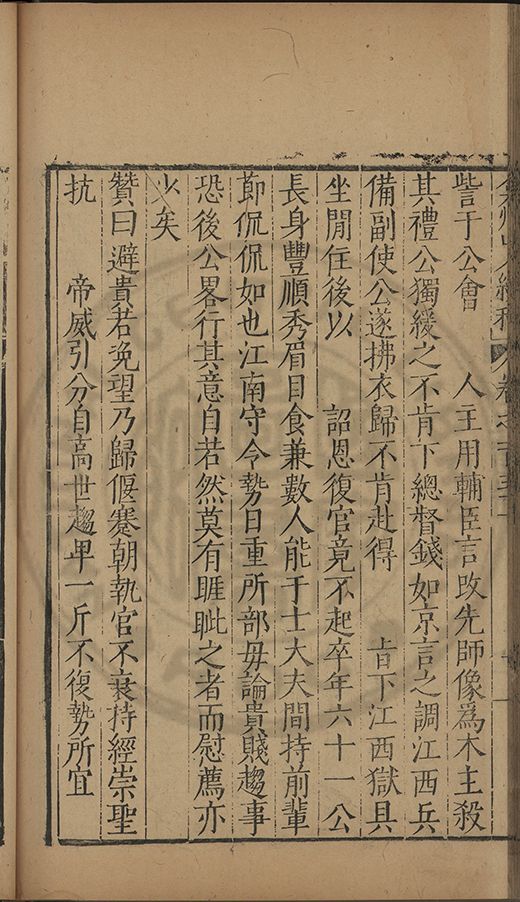 訾于公會　人主用輔臣言改先師像爲木主殺
其禮公獨緩之不肯下總督錢如京言之調江西兵
備副使公遂拂衣歸不肯赴得　旨下江西獄具
坐閒住後以　詔恩復官竟不起卒年六十一公
長身豐順秀眉目食兼數人能于士大夫間持前輩
節侃侃如也江南守令勢日重所部毋論貴賤趨事
恐後公畧行其意自若然莫有睚眦之者而慰薦亦
少矣
贊曰避貴若浼望乃歸偃蹇朝執官不衰持經崇聖
抗　帝威引分自高世趨卑一斤不復勢所宜